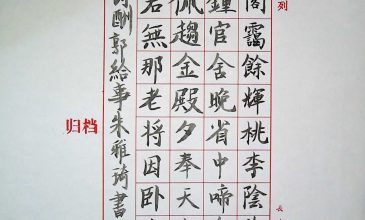 列
長
閣靄餘輝桃李陰
鍾官舍晚省中啼
佩趨金殿夕奉天
君無那老将因卧
酬郭給事朱雅琦書
归档